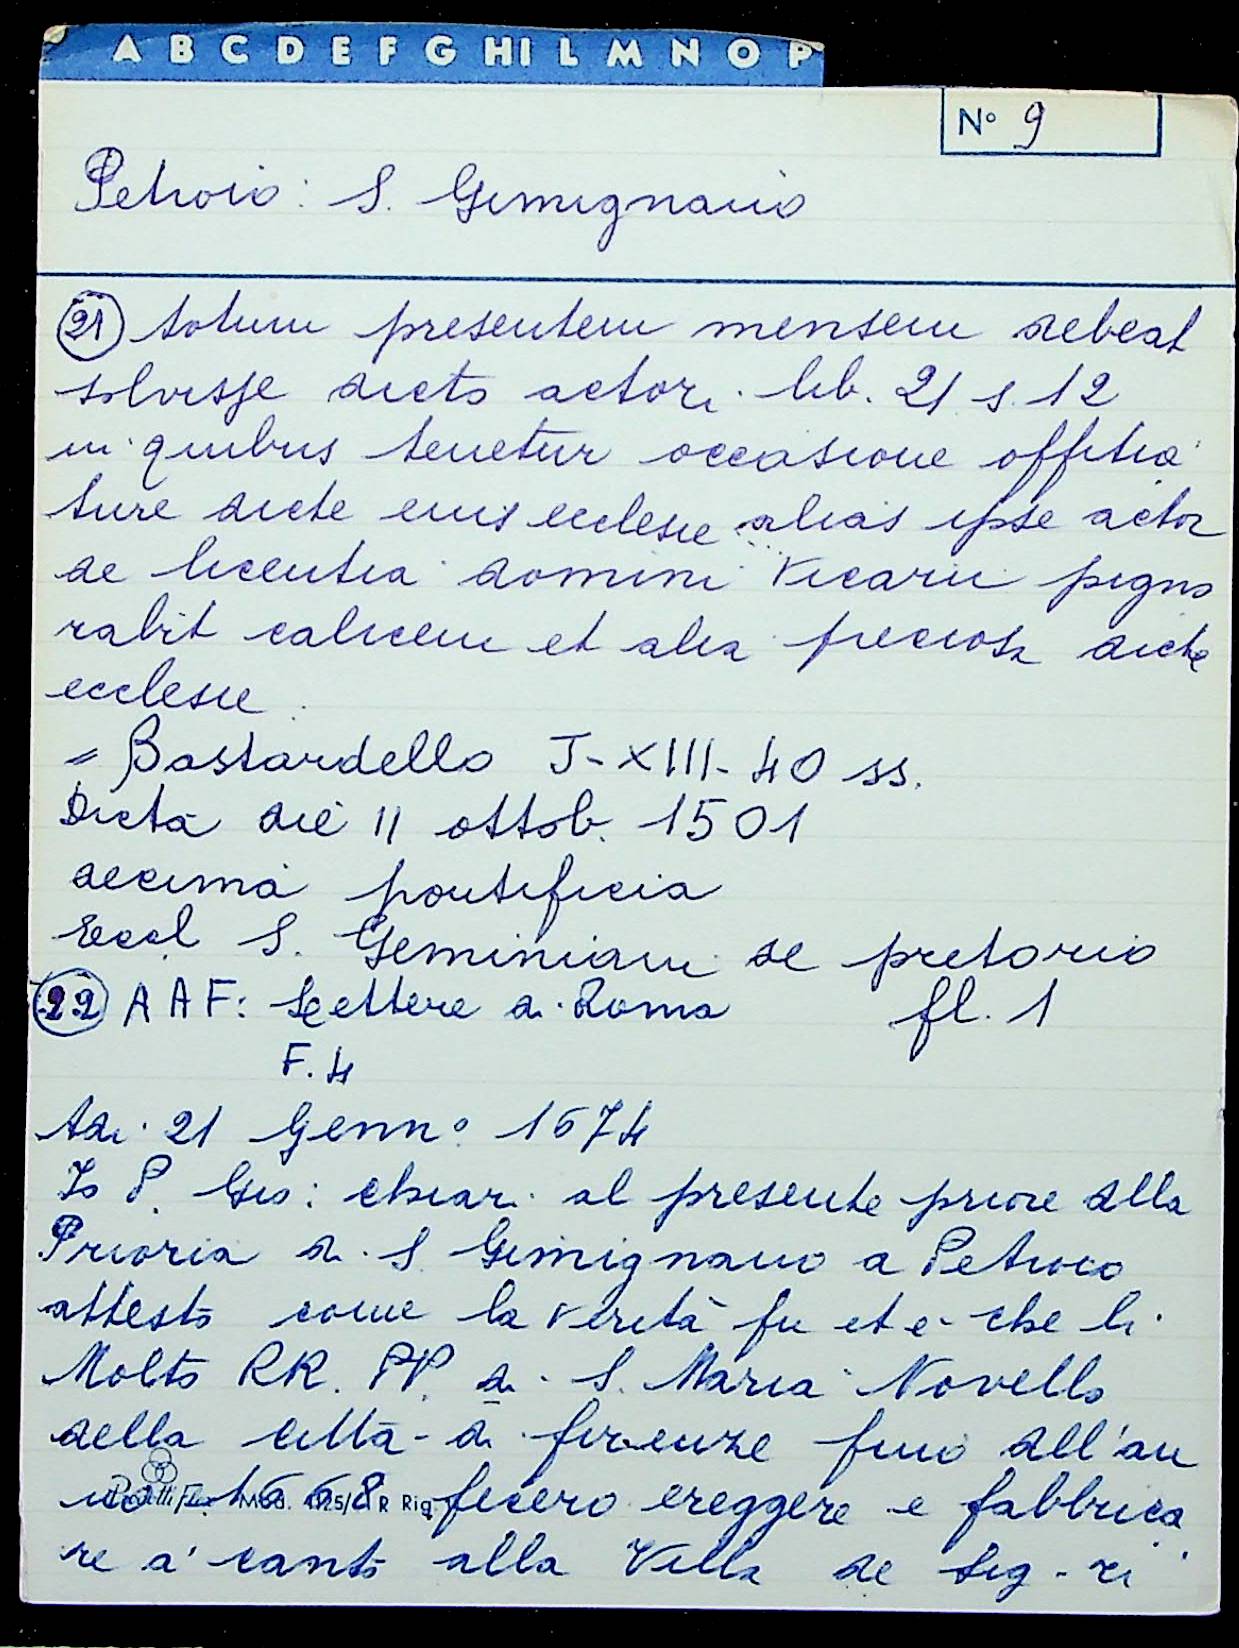 A B C D E F G HI L M N O P
N° 9
Petroio: S. Gimignano
21 totum presentem mensem debeat
solvisse dicto actori lib. 21 s. 12
in quibus tenetur occasione offitia
ture dicte eius ecclesie alias ipse actor
de licentia domini Vicarii pigno
rabit calicem et alia preciosa dicte
ecclesie
= Bastardello J-XIII-40 ss.
Dicta die 11 ottob. 1501
decima pontificia
Eccl S. Geminiani de pretorio
22 AAF: Lettere di Roma fl. 1
F. 4
Adi 21 Genn° 1674
Io P. Gio: chiari al presente priore della
Prioria di S Gimignano a Petroio
attesto come la verità fu et è che li
Molto RR. PP. di S. Maria Novella
della città di firenze fino dell'an
no 1668 fecero ereggere e fabbrica
Mod. 4125/ R Rig.
re a' canto alla Villa de sig-ri